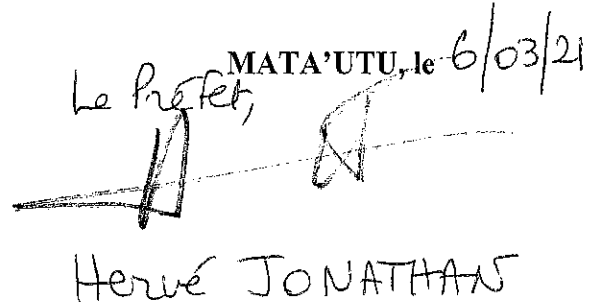 MATA'UTU, le 6/03/21
Le Préfet,
Hervé JONATHAN